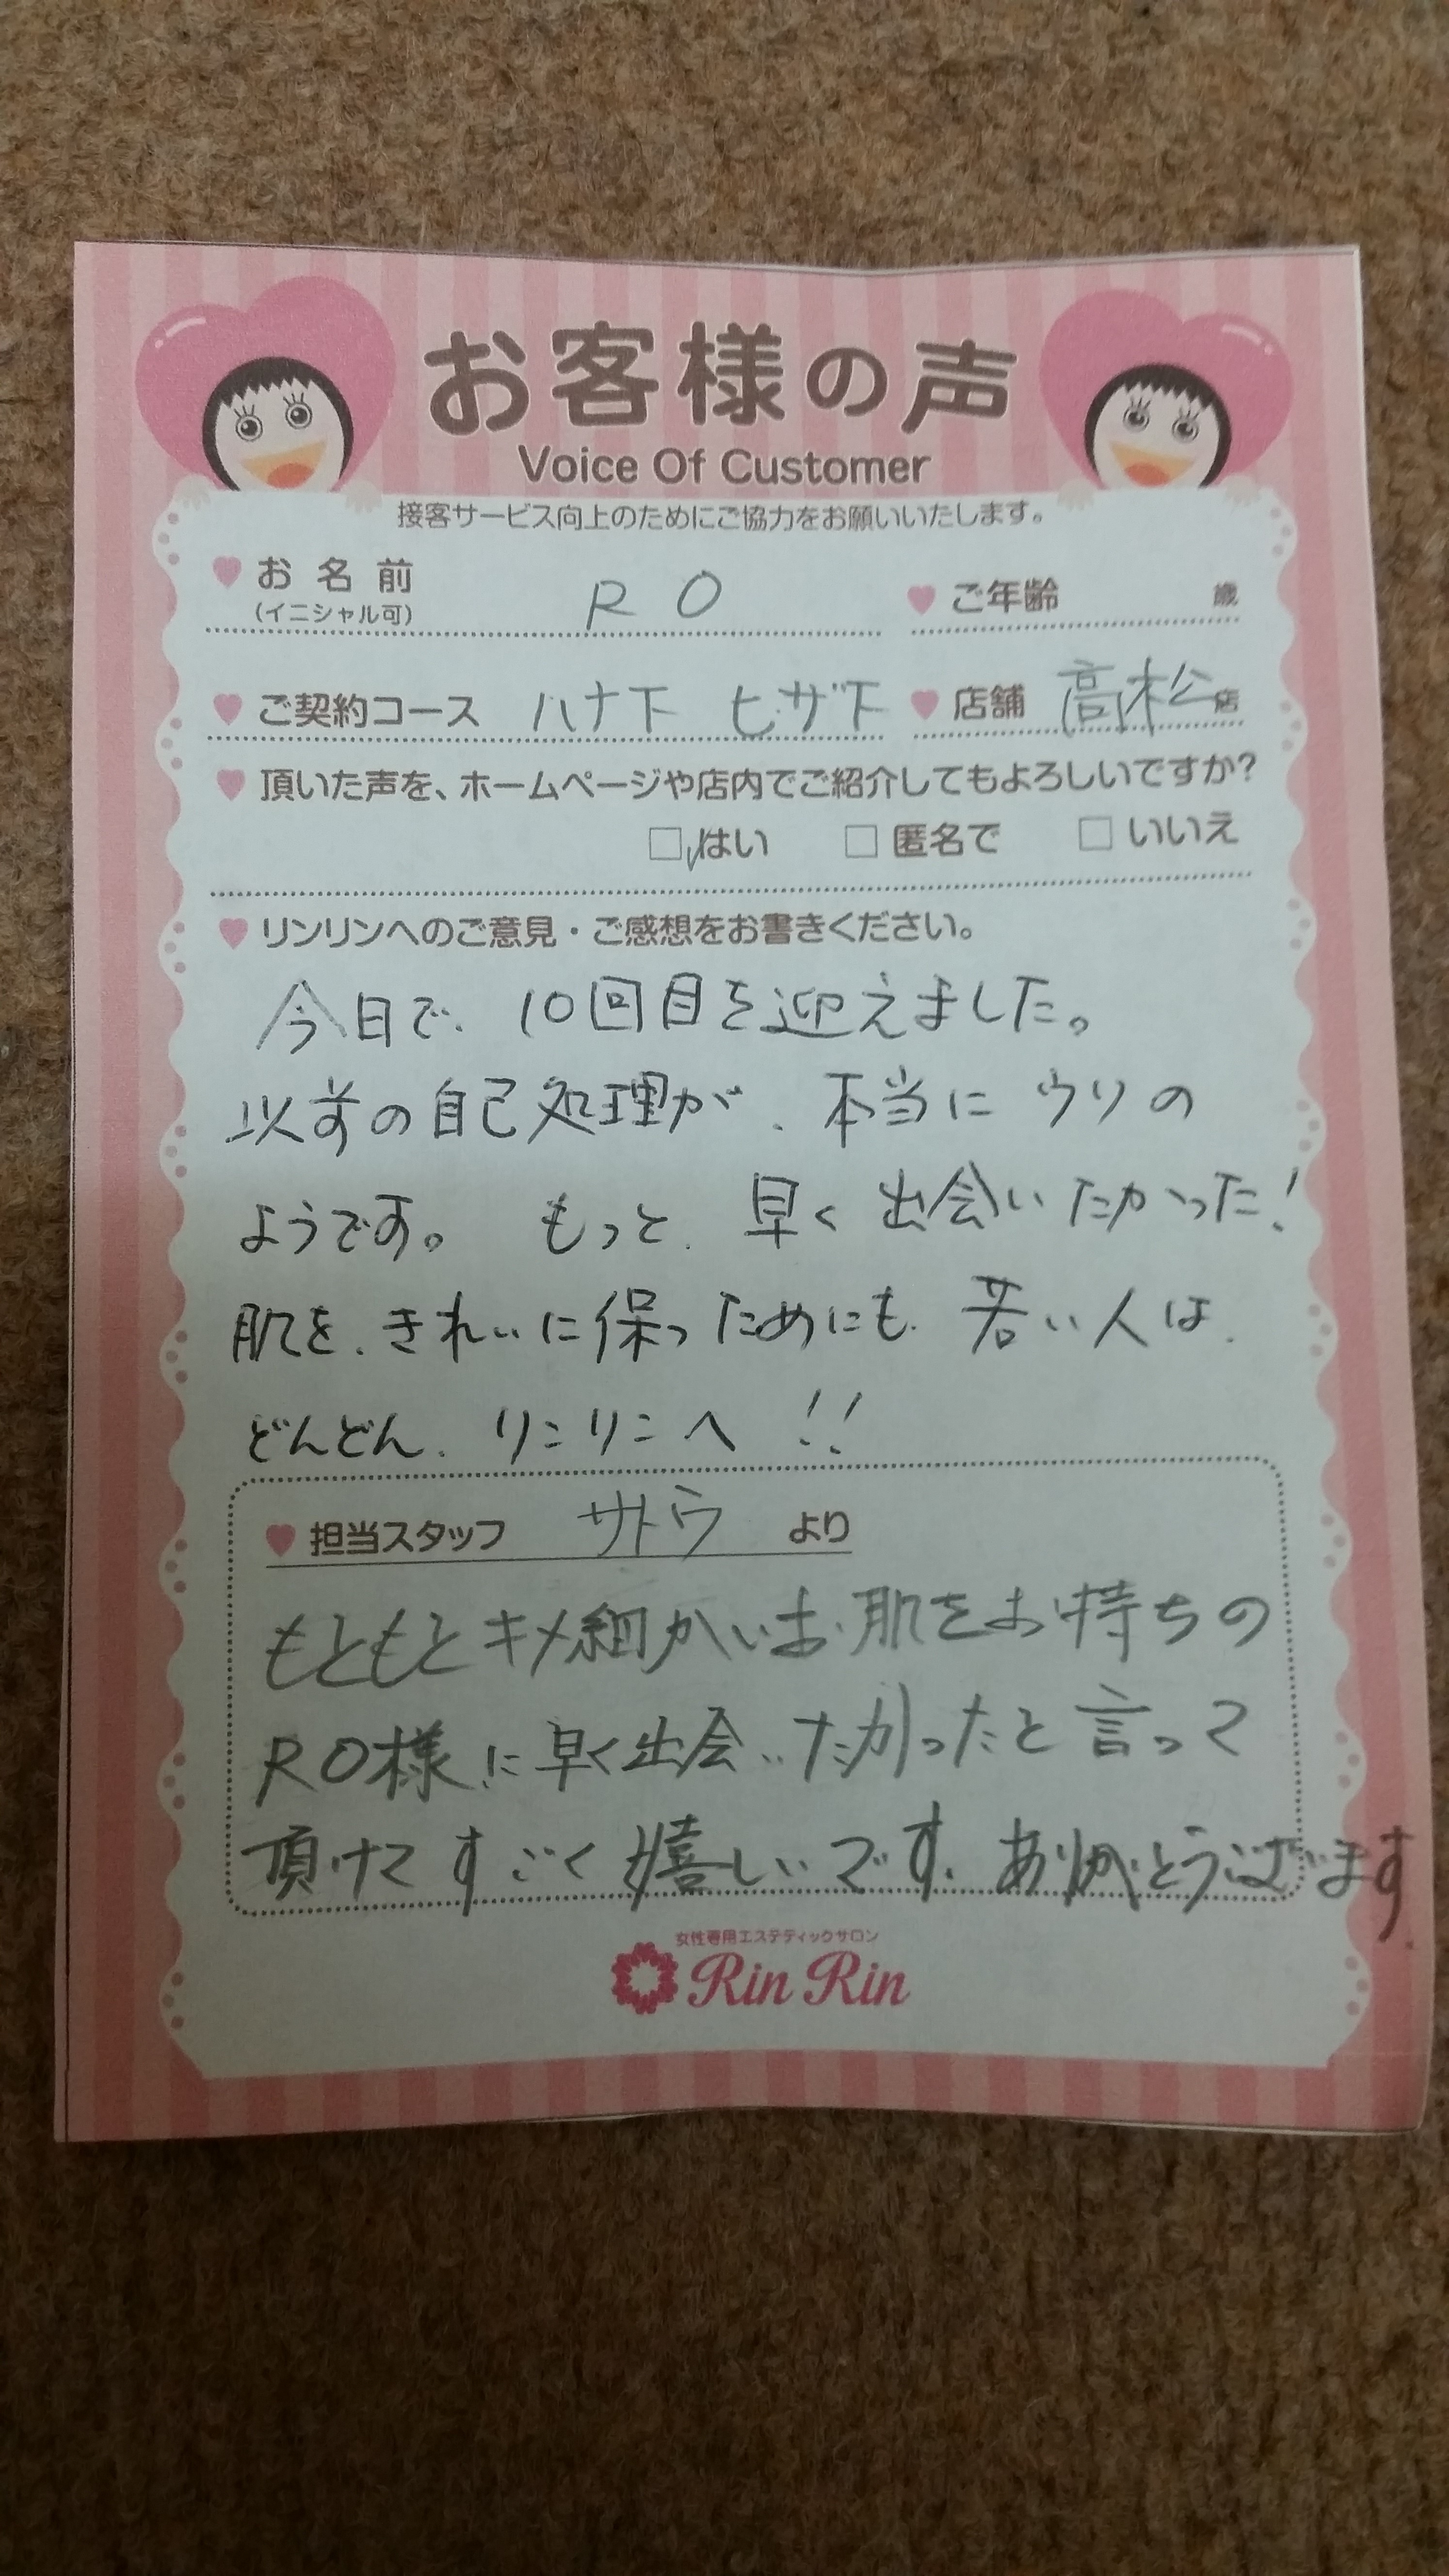 お客様の声
Voice Of Customer
接客サービス向上のためにご協力をお願いいたします。
お名前 R O ご年齢 歳
(イニシャル可)
ご契約コース ハナ下 ヒザ下 店舗 高松店
頂いた声を、ホームページや店内でご紹介してもよろしいですか?
□はい □匿名で □いいえ
リンリンへのご意見・ご感想をお書きください。
今日で、10回目を迎えました。
以前の自己処理が、本当にウソの
ようです。 もっと、早く出会いたかった!
肌を、きれいに保つためにも、若い人は、
どんどん、リンリンへ!!
担当スタッフ サトウ より
もともとキメ細かいお肌をお持ちの
RO様に早く出会いたかったと言って
頂けてすごく嬉しいです。ありがとうございます。
女性専用エステティックサロン
Rin Rin